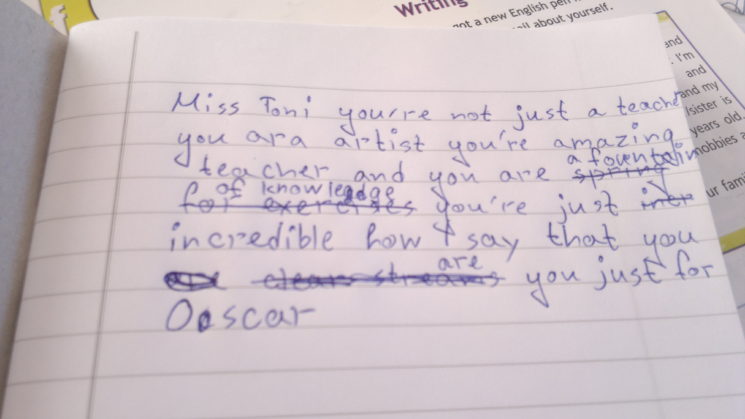 Writing
got a new English pen
about yourself.
and
I'm
and
and my
/sister is
years old.
hobbies
ur fami
Miss Toni you're not just a teacher
you ara artist you're amazing
a fountain
teacher and you are spring
of knowledge
for exercises you're just
incredible how I say that you
are
clear streams you just for
Oscar